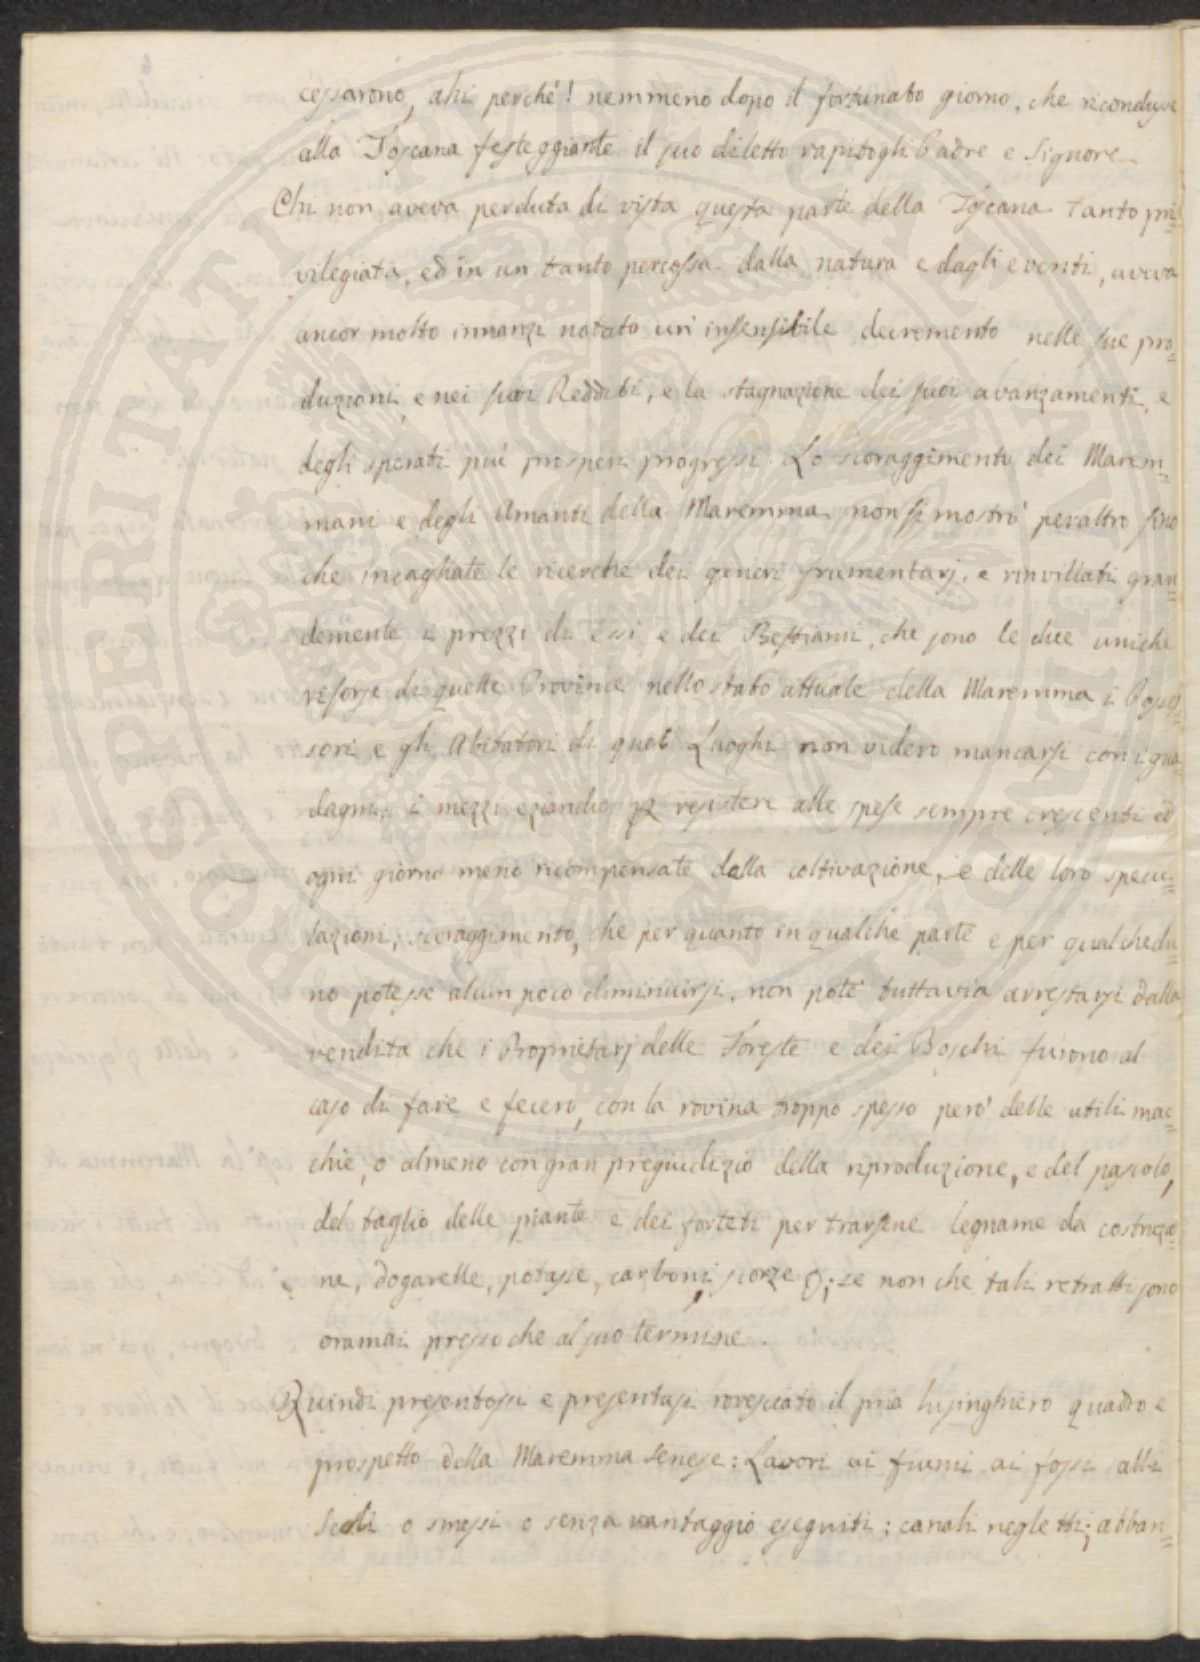 cessarono, ahi perché! nemmeno dopo il fortunato giorno, che ricondusse
alla Toscana festeggiante il suo diletto rapitogli Padre e Signore.
Chi non aveva perduta di vista questa parte della Toscana tanto pri=
vilegiata, ed in un tanto percossa dalla natura e dagli eventi, aveva
ancor molto innanzi notato un' insensibile decremento nelle sue pro=
duzioni, e nei suoi Redditi, e la stagnazione dei suoi avanzamenti, e
degli sperati più prosperi progressi. Lo scoraggimento dei Marem=
mani e degli Amanti della Maremma non si mostrò peraltro fino
che incagliate le ricerche dei generi frumentarj, e rinviliati gran=
demente i prezzi di essi e dei Bestiami, che sono le due uniche
risorse di quelle Provincie nello stato attuale della Maremma i Posses=
sori, e gli Abitatori di quei Luoghi non videro mancarsi con i gua=
dagni, i mezzi eziandio per resistere alle spese sempre crescenti ed
ogni giorno meno ricompensate dalla coltivazione, e delle loro specu=
lazioni; scoraggimento, che per quanto in qualche parte e per qualchedu=
no potesse alcun poco diminuirsi, non poté tuttavia arrestarsi dalla
vendita che i Proprietarj delle Foreste e dei Boschi furono al
caso di fare e fecero, con la rovina troppo spesso però delle utili mac=
chie, o almeno con gran pregiudizio della riproduzione, e del pascolo,
del taglio delle piante e dei forteti per trarsene legname da costruzio=
ne, dogarelle, potasse, carboni, scorze &; se non che tali retratti sono
oramai presso che al suo termine.
Quindi presentossi e presentasi rovesciato il pria lusinghiero quadro e
prospetto della Maremma Senese: Lavori ai fiumi ai fossi alli
Scoli o smessi o senza vantaggio eseguiti; canali negletti; abban=